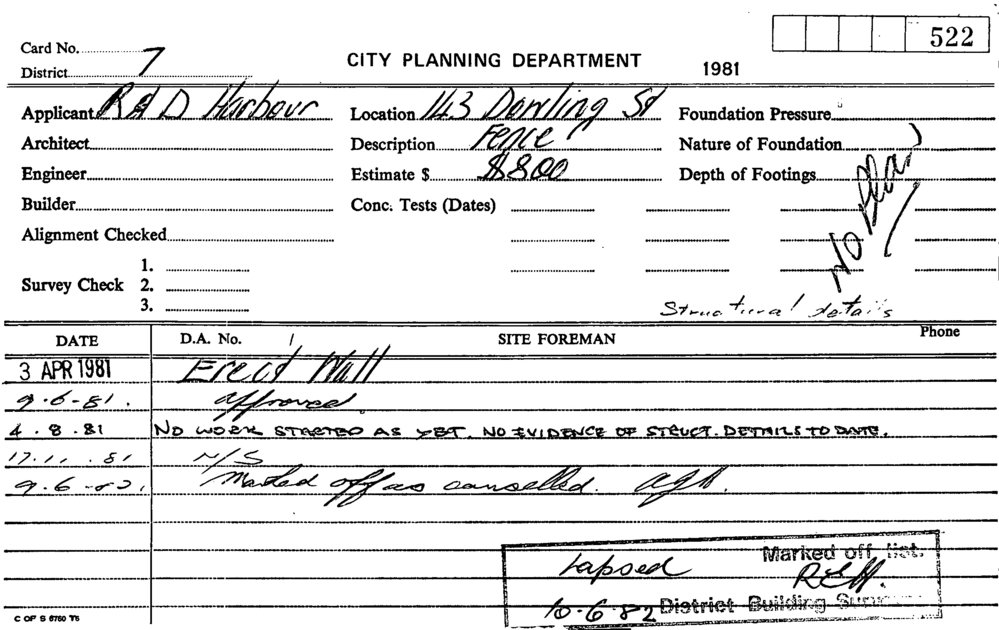 522
Card No.
District 7
CITY PLANNING DEPARTMENT
1981
Applicant R & D Harbour
Location 143 Dowling St
Foundation Pressure
Architect
Description Fence
Nature of Foundation
Engineer
Estimate $ $800
Depth of Footings
No Plan
Builder
Conc. Tests (Dates)
Alignment Checked
Survey Check
1.
2.
3.
Structural details
DATE D.A. No. SITE FOREMAN Phone
3 APR 1981 Erect Wall
9.6.81. approved.
4.8.81 NO WORK STARTED AS YET. NO EVIDENCE OF STRUCT. DETAILS TO DATE.
17.11.81 N/S
9.6.82. Marked off as cancelled.
Marked off list.
Lapsed
10-6-82 District Building
C OF S 6760 T6